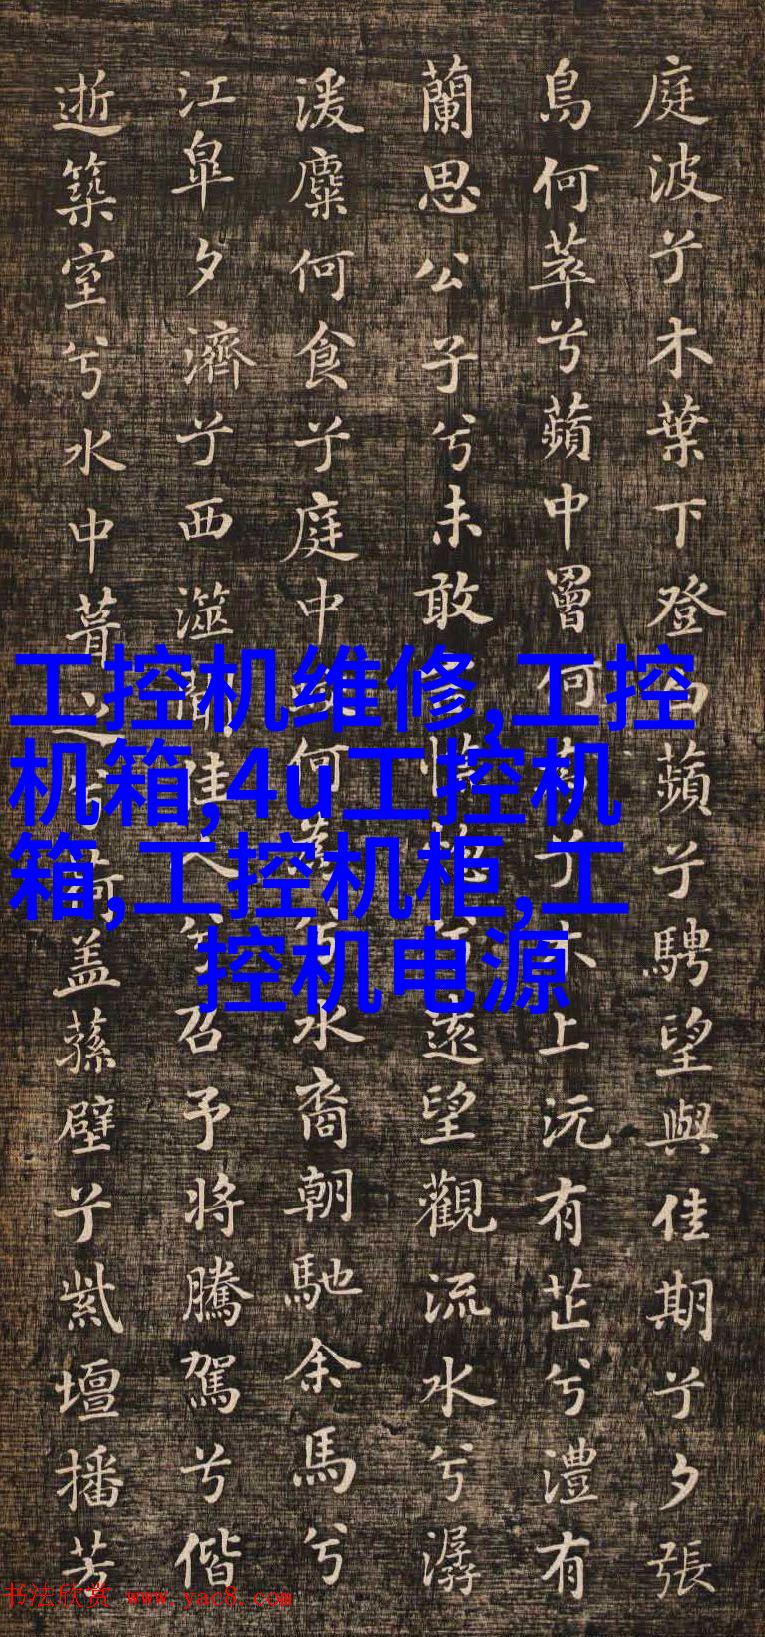 庭波兮木葉下登白蘋兮騁望與佳期兮夕張
鳥何萃兮蘋中罾何兮木上沅有芷兮澧有
蘭思公子兮未敢言怳忽兮遠望觀流水兮潺
湲麋何食兮庭中何為兮水裔朝馳余馬兮
江皐夕濟兮西澨聞佳人兮召予將騰駕兮偕
逝築室兮水中葺之兮荷盖蓀壁兮紫壇播芳
工控机维修,工控
机箱,4u工控机
箱,工控机柜,工
控机电源
书法欣赏 www.yac8.com